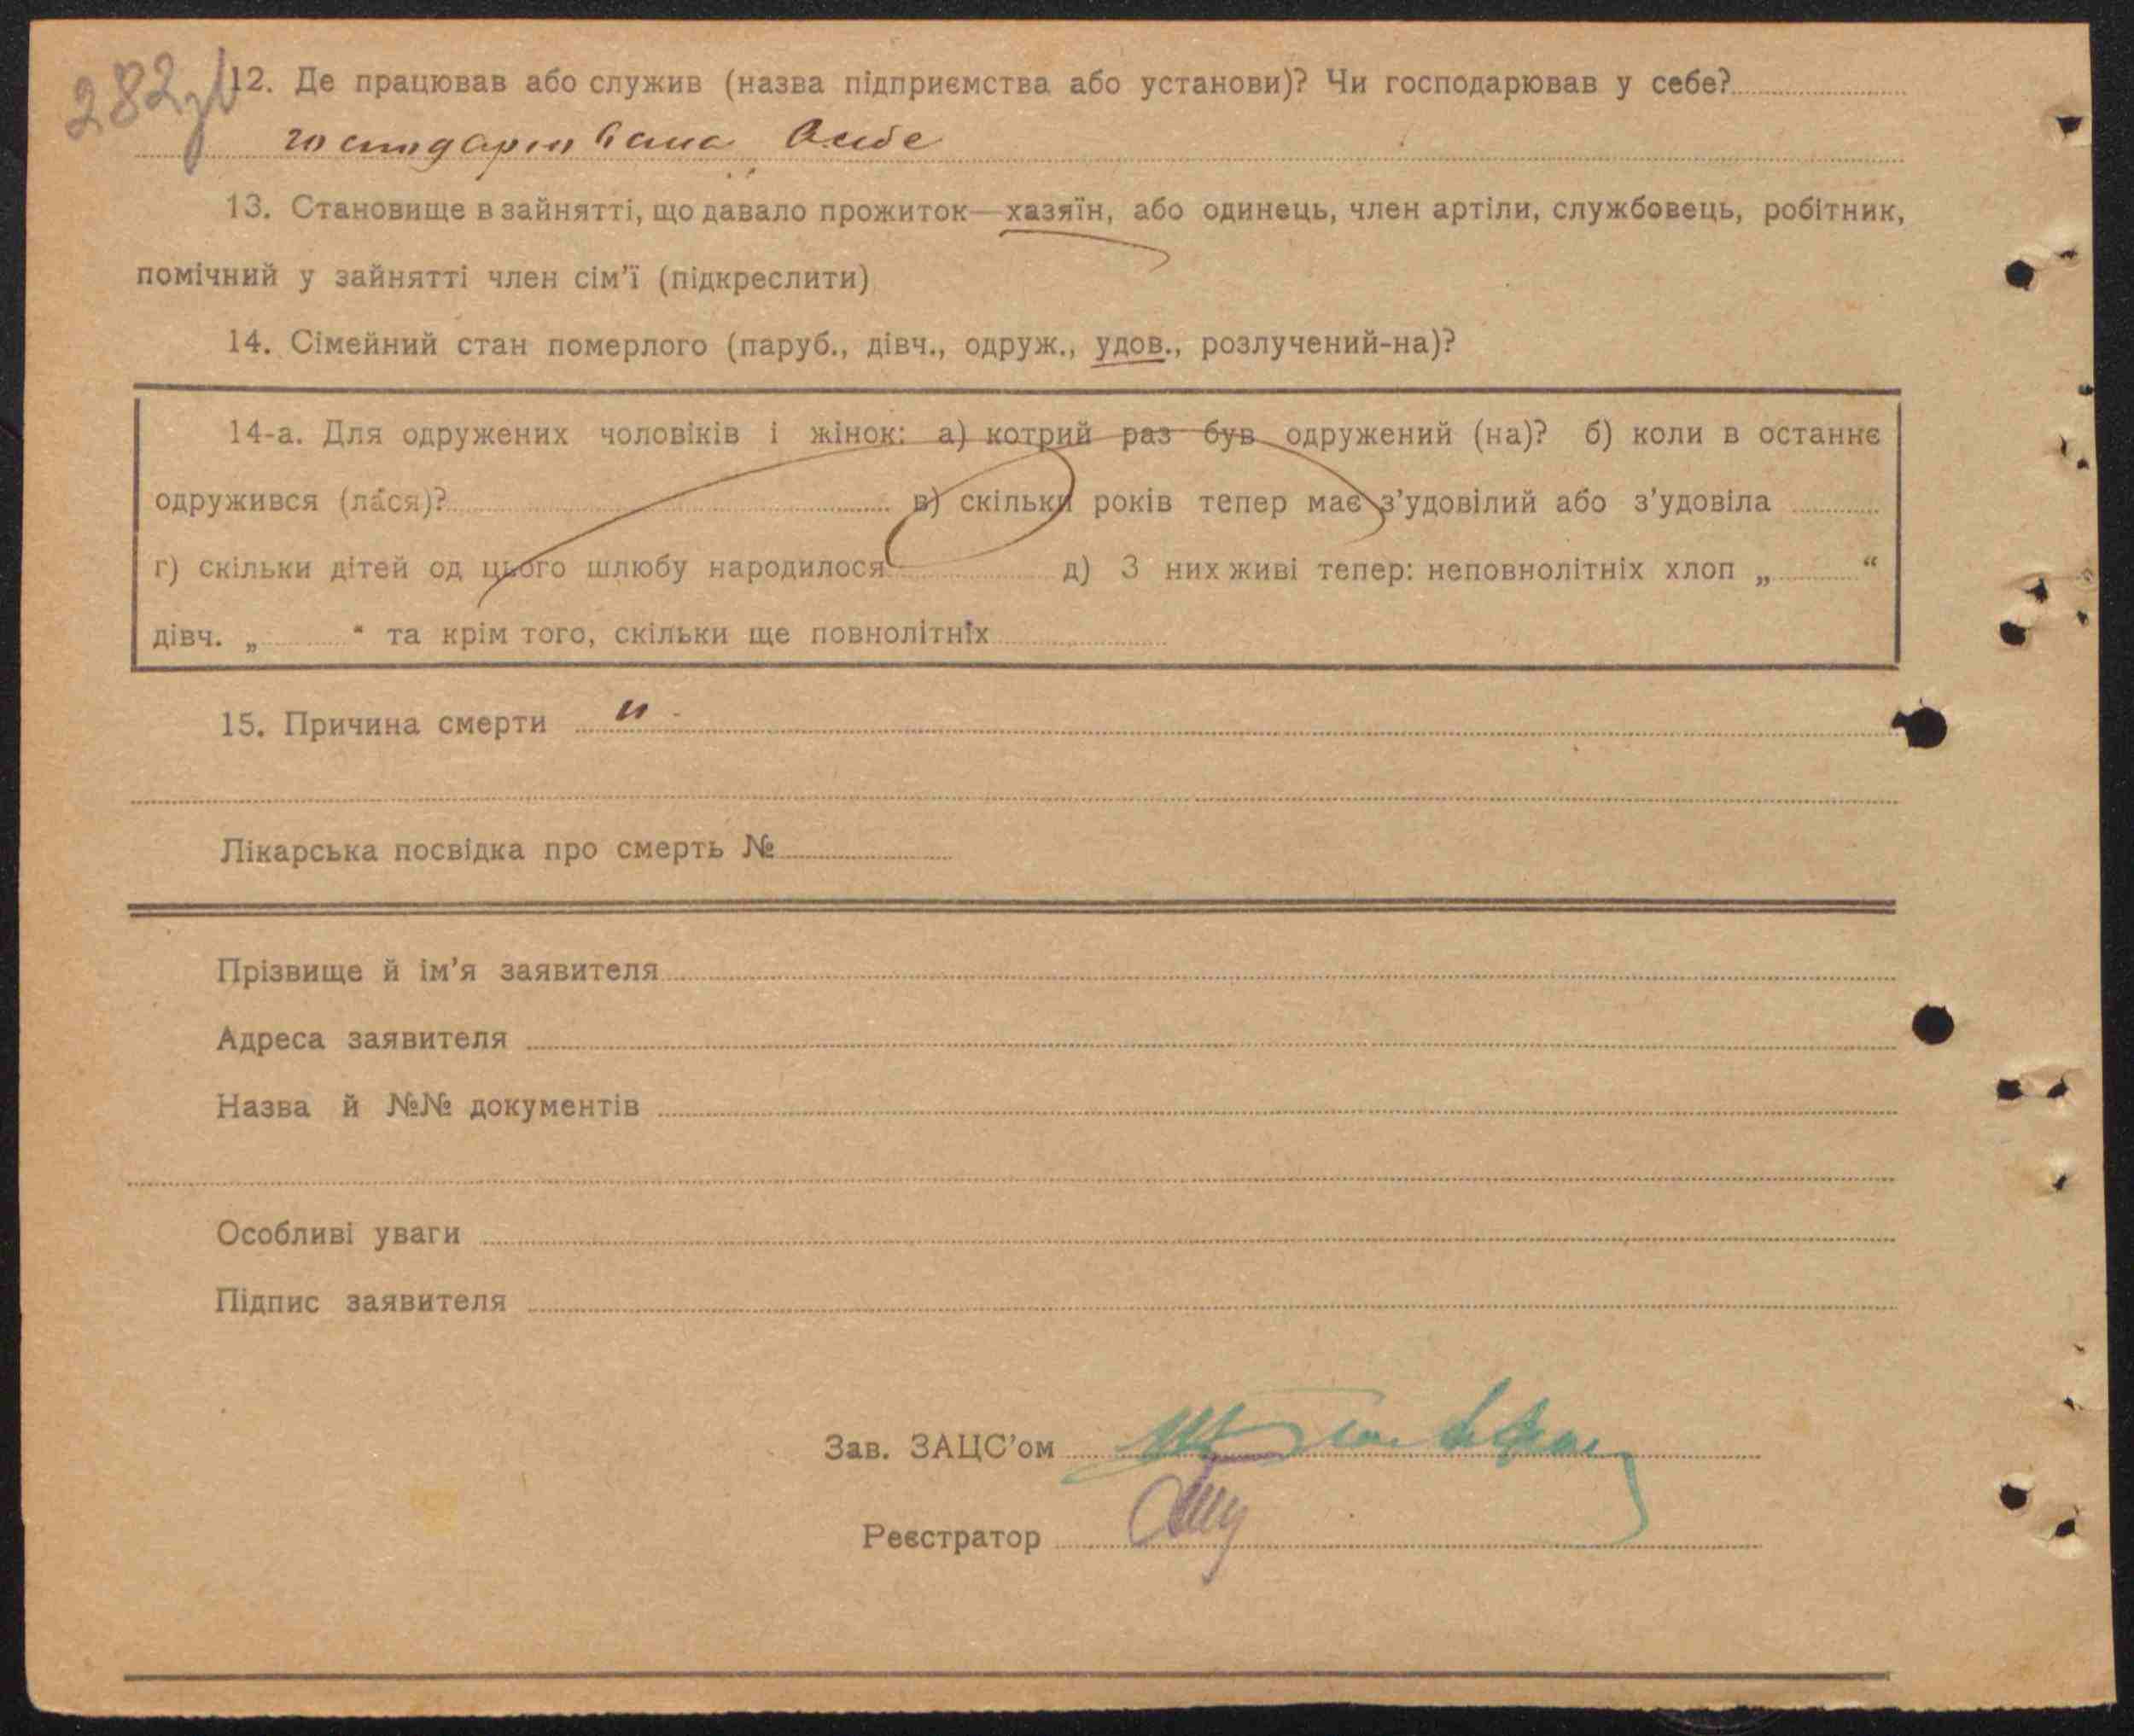 282
12. Де працював або служив (назва підприємства або установи)? Чи господарював у себе?
господарювала
13. Становище в зайнятті, що давало прожиток—хазяїн, або одинець, член артіли, службовець, робітник,
помічний у зайнятті член сім'ї (підкреслити)
14. Сімейний стан померлого (паруб., дівч., одруж., удов., розлучений-на)?
14-а. Для одружених чоловіків і жінок: а) котрий раз був одружений (на)? б) коли в останнє
одружився (лася)? в) скільки років тепер має з'удовілий або з'удовіла
г) скільки дітей од цього шлюбу народилося д) З них живі тепер: неповнолітніх хлоп „ “
дівч. „ “ та крім того, скільки ще повнолітніх
15. Причина смерти
Лікарська посвідка про смерть №
Прізвище й ім'я заявителя
Адреса заявителя
Назва й №№ документів
Особливі уваги
Підпис заявителя
Зав. ЗАЦС'ом
Реєстратор